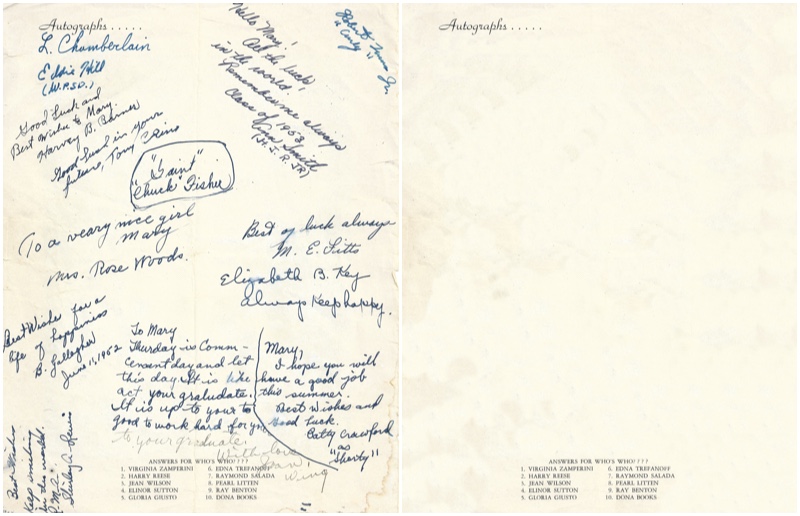 Autographs . . . . .
L. Chamberlain
Eddie Hill
(W.P.S.D.)
Good Luck and
Best Wishes to Mary.
Harvey B.
Good Luck in your
future, Tony
"Saint"
"Chuck" Fisher
Hello Mary!
All the luck
in the world.
Remember me always
Class of 1953
Ann Smith
(H.J.R. JR)
"Corky"
To a veary nice girl
Mary
Mrs. Rose Woods.
Best of luck always
M. E. Fitts
Elizabeth B. Key
Always Keep happy.
Best Wishes for a
life of happiness
B. Gallagher
June 11, 1952
To Mary
Thurday is Comm-
censent day and let
this day. It is like
act your graludate.
It is up to your to
good to work hard for you
to your graduate.
With love
Wing
Mary,
I hope you will
have a good job
this summer.
Best Wishes and
Good Luck.
Catty Crawford
"as
Shorty"
Best Wishes
Keep smiling
in the world.
Shirley A. Lewis
ANSWERS FOR WHO'S WHO????
1. VIRGINIA ZAMPERINI
2. HARRY REESE
3. JEAN WILSON
4. ELINOR SUTTON
5. GLORIA GIUSTO
6. EDNA TREFANOFF
7. RAYMOND SALADA
8. PEARL LITTEN
9. RAY BENTON
10. DONA BOOKS
Autographs . . . . .
ANSWERS FOR WHO'S WHO????
1. VIRGINIA ZAMPERINI
2. HARRY REESE
3. JEAN WILSON
4. ELINOR SUTTON
5. GLORIA GIUSTO
6. EDNA TREFANOFF
7. RAYMOND SALADA
8. PEARL LITTEN
9. RAY BENTON
10. DONA BOOKS